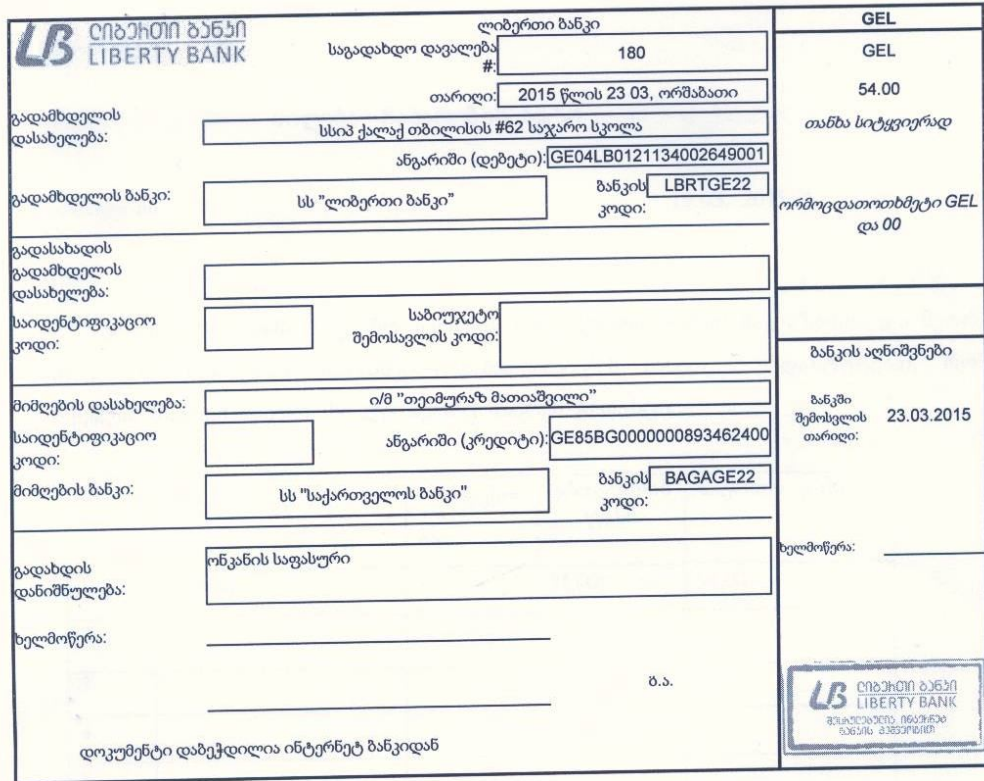 ლიბერთი ბანკი
LIBERTY BANK
ლიბერთი ბანკი
საგადახდო დავალება #: 180
თარიღი: 2015 წლის 23 03, ორშაბათი
გადამხდელის დასახელება: სსიპ ქალაქ თბილისის #62 საჯარო სკოლა
ანგარიში (დებეტი): GE04LB0121134002649001
გადამხდელის ბანკი: სს "ლიბერთი ბანკი" ბანკის კოდი: LBRTGE22
გადასახადის გადამხდელის დასახელება:
საიდენტიფიკაციო კოდი: საბიუჯეტო შემოსავლის კოდი:
მიმღების დასახელება: ი/მ "თეიმურაზ მათიაშვილი"
საიდენტიფიკაციო კოდი: ანგარიში (კრედიტი): GE85BG0000000893462400
მიმღების ბანკი: სს "საქართველოს ბანკი" ბანკის კოდი: BAGAGE22
გადახდის დანიშნულება: ონკანის საფასური
ხელმოწერა:
ბ.ა.
დოკუმენტი დაბეჭდილია ინტერნეტ ბანკიდან
GEL
GEL
54.00
თანხა სიტყვიერად
ორმოცდათოთხმეტი GEL
და 00
ბანკის აღნიშვნები
ბანკში შემოსვლის თარიღი: 23.03.2015
ხელმოწერა:
ლიბერთი ბანკი
LIBERTY BANK
შესრულებულია ინტერნეტ
ბანკის მეშვეობით